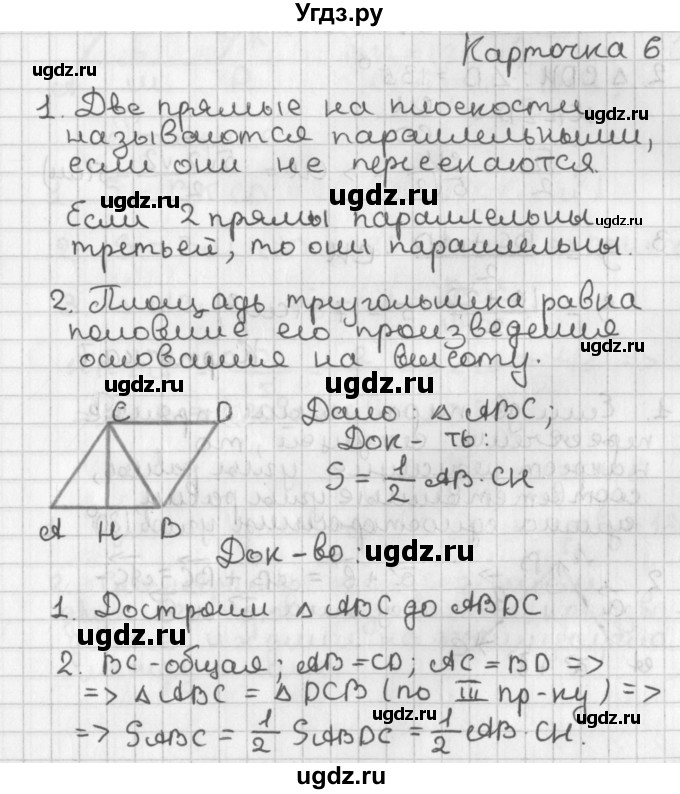 Угдз.ру
Карточка 6
ugdz.ru
1. Две прямые на плоскости
ugdz.ru
называются параллельными,
если они не пересекаются.
ugdz.ru ugdz.ru
Если 2 прямы параллельны ugdz.ru
третьей, то они параллельны.
2. Площадь треугольника равна
половине его произведения
ugdz.ru
основания на высоту.
ugdz.ru ugdz.ru
C D Дано: △ ABC,
Док-ть:
S = 1/2 AB · CH
A H B
Док-во: ugdz.ru
1. Достроим △ ABC до ABDC
ugdz.ru
2. BC - общая; AB = CD; AC = BD =>
=> △ ABC = △ DCB (по III пр-ку) =>
ugdz.ru ugdz.ru
=> SABC = 1/2 SABDC = 1/2 AB · CH.
ugdz.ru